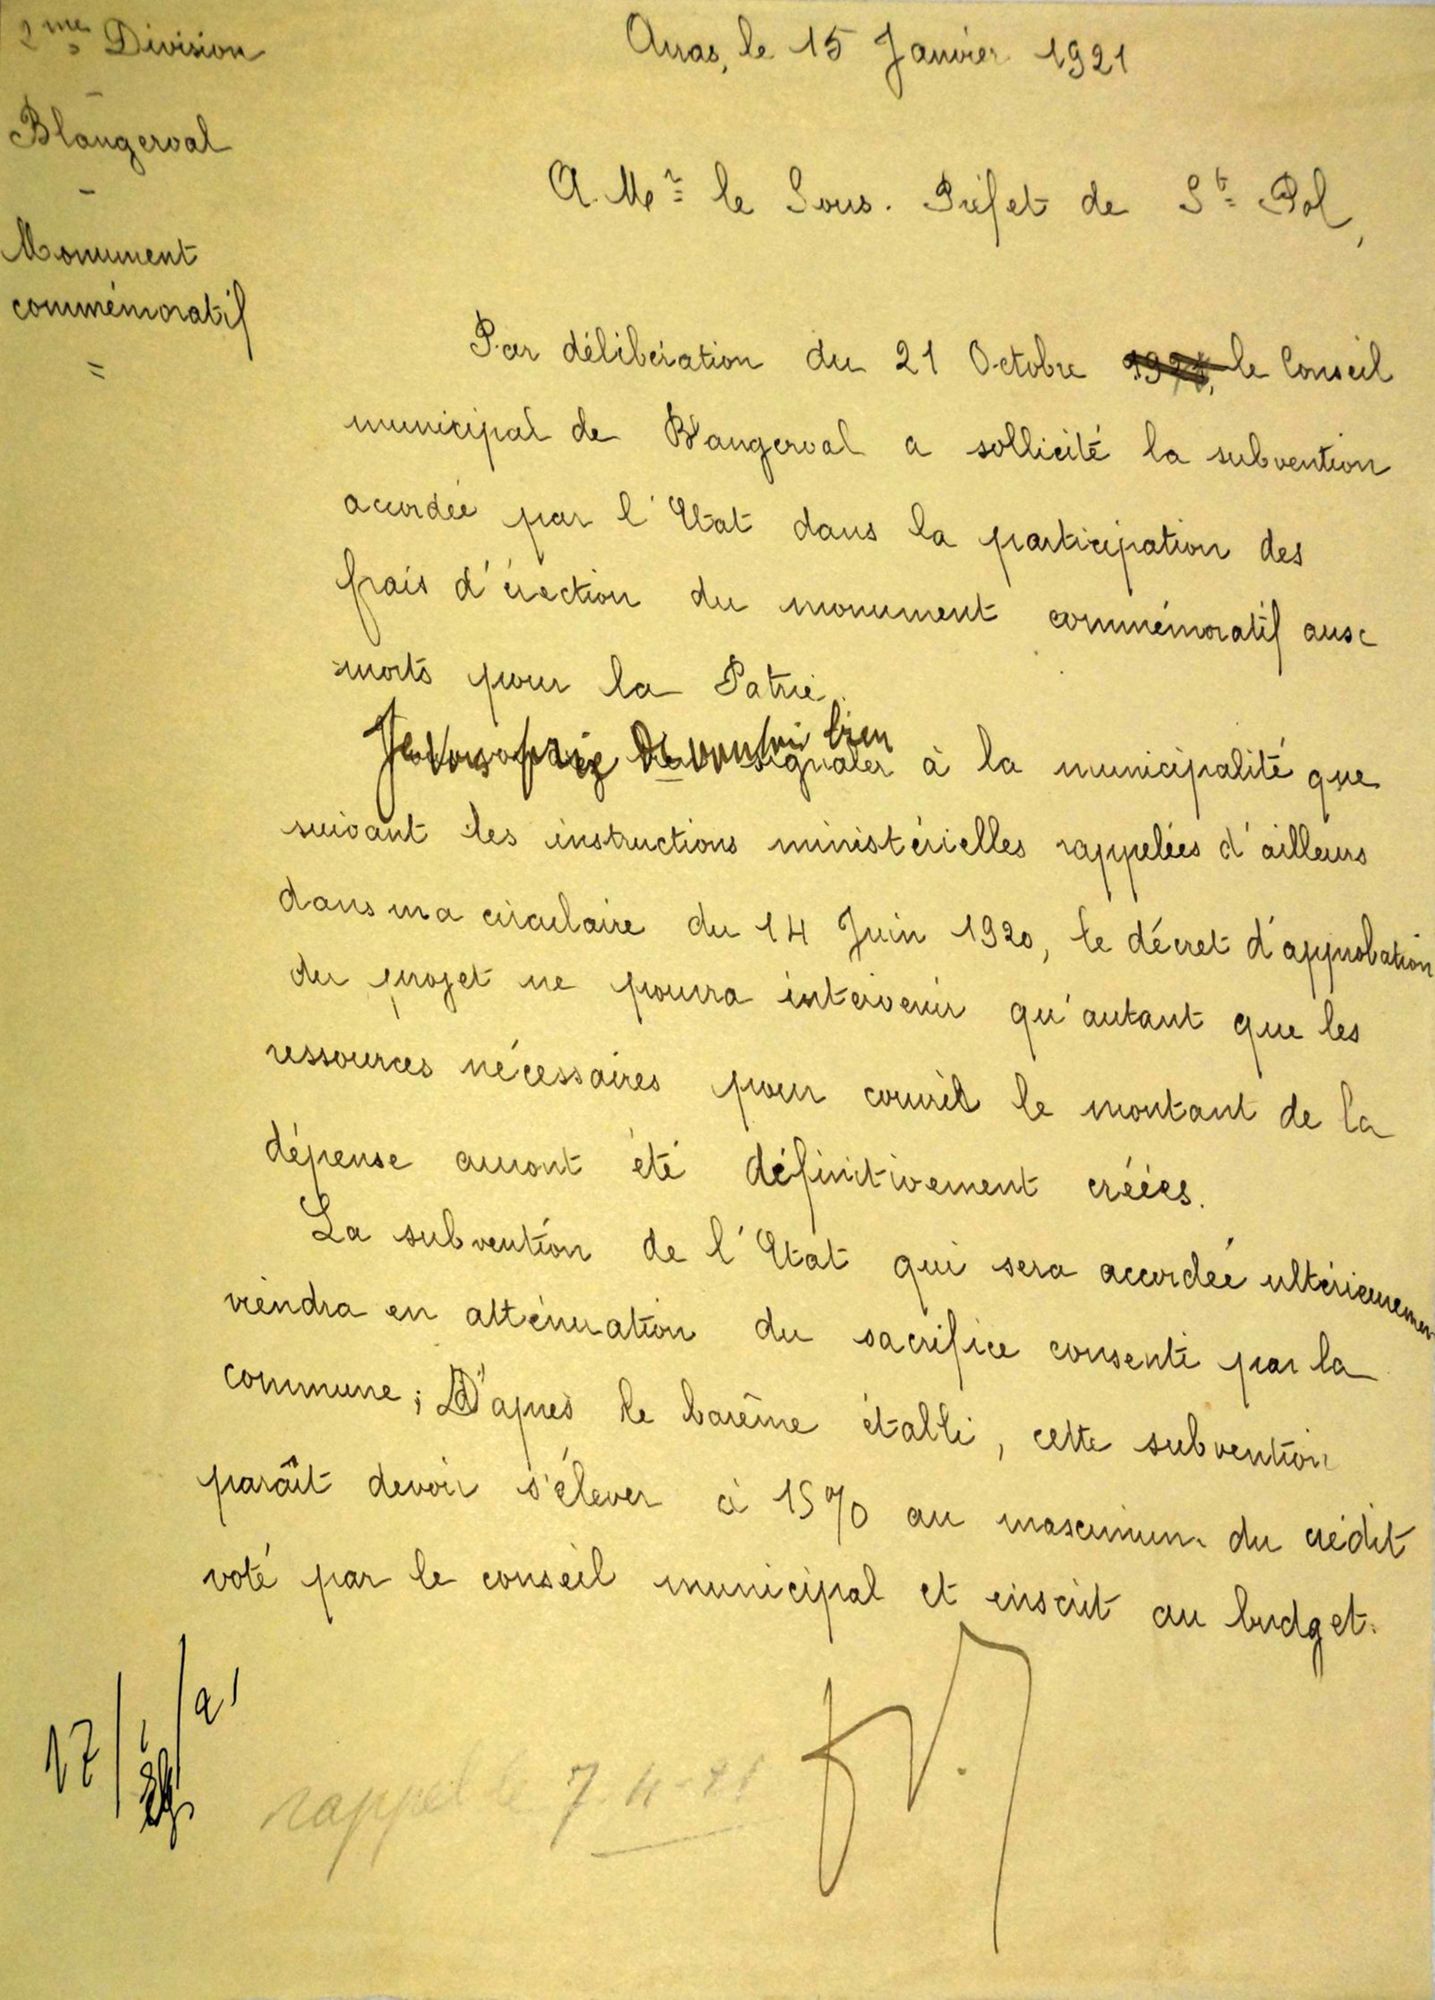 2me Division
Blangerval
Monument
commémoratif
Arras, le 15 Janvier 1921
A. Mr le Sous-Préfet de St Pol,
Par délibération du 21 Octobre le Conseil
municipal de Blangerval a sollicité la subvention
accordée par l'Etat dans la participation des
frais d'érection du monument commémoratif aux
morts pour la Patrie.
Je vous prie de vouloir bien
signaler à la municipalité que
suivant les instructions ministérielles rappelées d'ailleurs
dans ma circulaire du 14 Juin 1920, le décret d'approbation
du projet ne pourra intervenir qu'autant que les
ressources nécessaires pour couvrir le montant de la
dépense auront été définitivement créées.
La subvention de l'Etat qui sera accordée ultérieurement
viendra en atténuation du sacrifice consenti par la
commune; D'après le barême établi, cette subvention
paraît devoir s'élever à 15% au maximum du crédit
voté par le conseil municipal et inscrit au budget.
17/1/21
rappel le 7-4-21